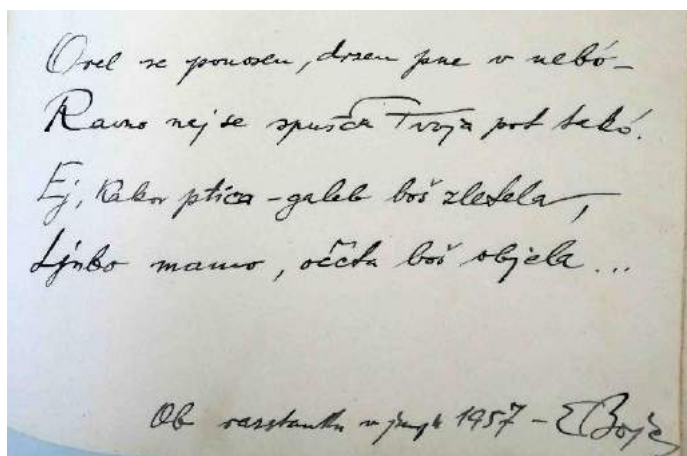 Orel se ponosen, drzen pne v nebó –
Ravno naj se spušča Tvoja pot takó.
Ej, kakor ptica – galeb boš zletela,
Ljubo mamo, očeta boš objela ...
Ob razstanku v 1957 – E Boje